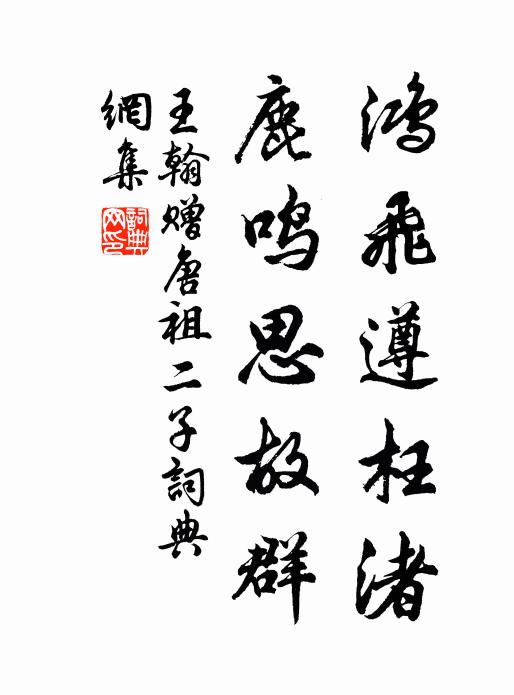 鸿飛遵枉渚
鹿鸣思故群
王翰赠唐祖二子詞典
網集
詞典
网印